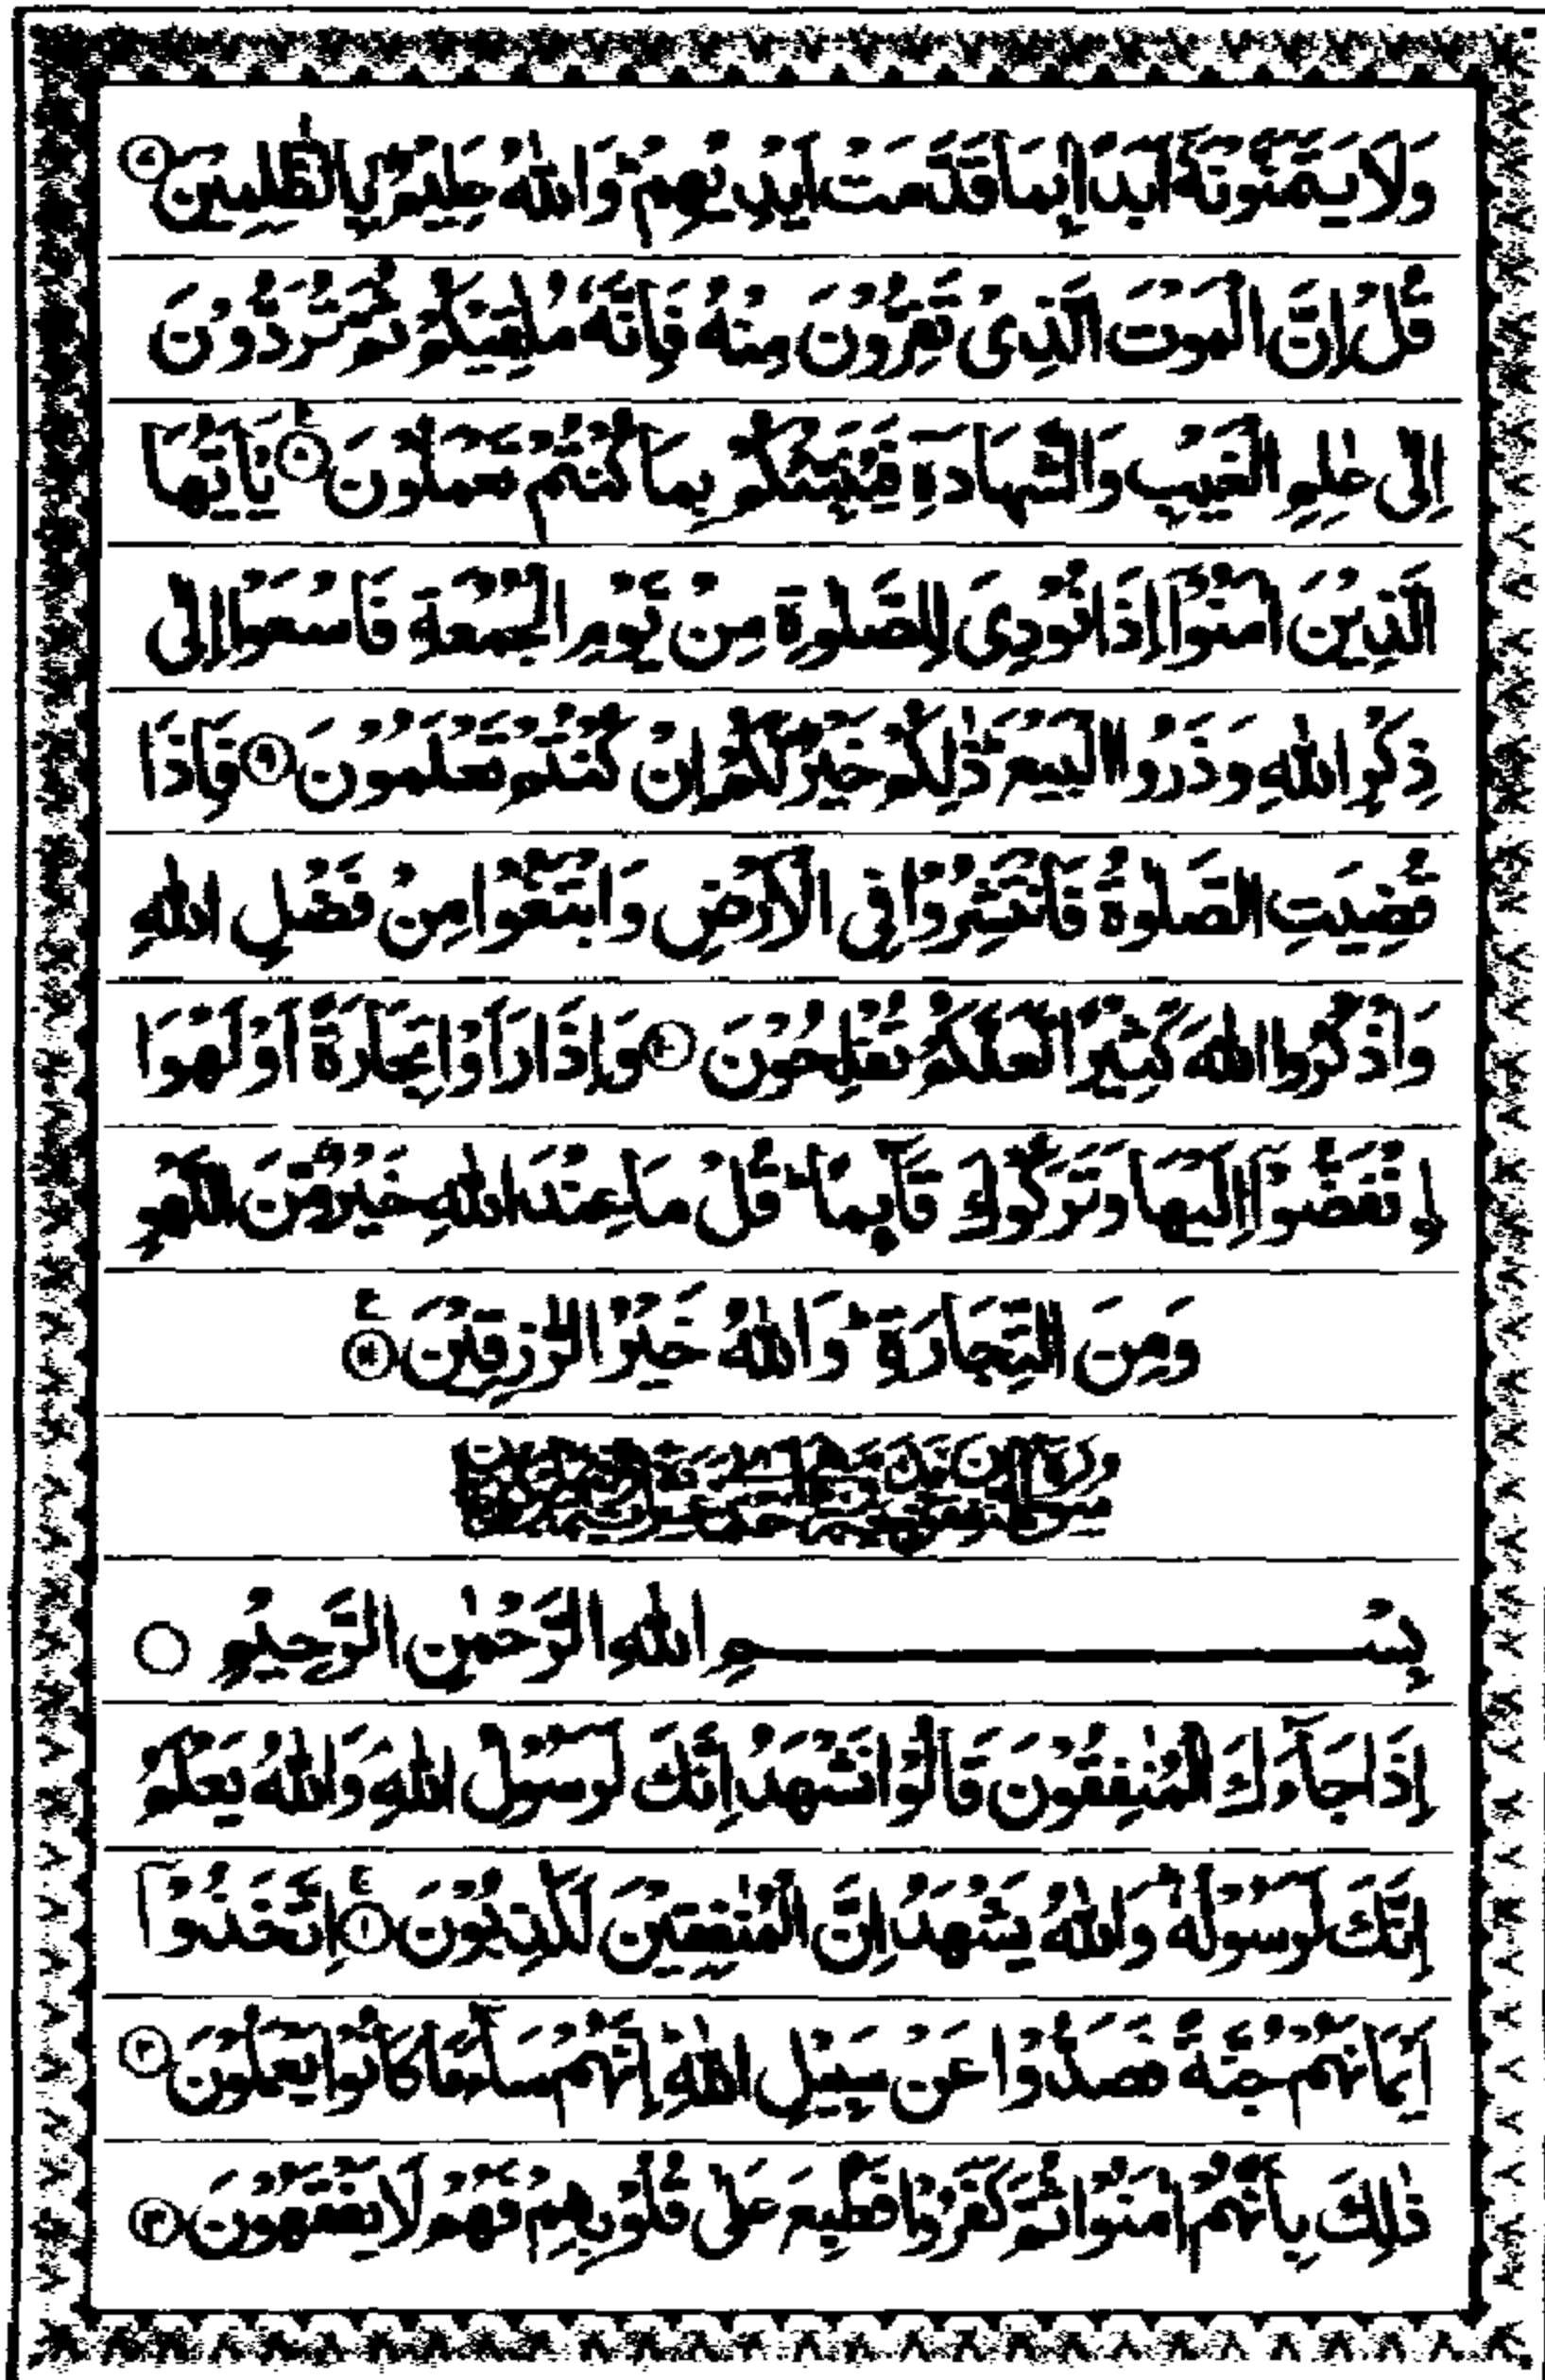 وَلَا يَتَمَنَّوْنَهٗۤ اَبَدًۢا بِمَا قَدَّمَتْ اَيْدِيْهِمْ ؕ وَاللّٰهُ عَلِيْمٌۢ بِالظّٰلِمِيْنَ ۷
قُلْ اِنَّ الْمَوْتَ الَّذِىْ تَفِرُّوْنَ مِنْهُ فَاِنَّهٗ مُلٰقِيْكُمْ ثُمَّ تُرَدُّوْنَ
اِلٰى عٰلِمِ الْغَيْبِ وَالشَّهَادَةِ فَيُنَبِّئُكُمْ بِمَا كُنْتُمْ تَعْمَلُوْنَ ۸ ع يٰۤاَيُّهَا
الَّذِيْنَ اٰمَنُوْۤا اِذَا نُوْدِىَ لِلصَّلٰوةِ مِنْ يَّوْمِ الْجُمُعَةِ فَاسْعَوْا اِلٰى
ذِكْرِ اللّٰهِ وَذَرُوا الْبَيْعَ ؕ ذٰلِكُمْ خَيْرٌ لَّكُمْ اِنْ كُنْتُمْ تَعْلَمُوْنَ ۹ فَاِذَا
قُضِيَتِ الصَّلٰوةُ فَانْتَشِرُوْا فِى الْاَرْضِ وَابْتَغُوْا مِنْ فَضْلِ اللّٰهِ
وَاذْكُرُوا اللّٰهَ كَثِيْرًا لَّعَلَّكُمْ تُفْلِحُوْنَ ۱۰ وَاِذَا رَاَوْا تِجَارَةً اَوْ لَهْوَا
۟اِنْفَضُّوْۤا اِلَيْهَا وَتَرَكُوْكَ قَآئِمًا ؕ قُلْ مَا عِنْدَ اللّٰهِ خَيْرٌ مِّنَ اللَّهْوِ
وَمِنَ التِّجَارَةِ ؕ وَاللّٰهُ خَيْرُ الرّٰزِقِيْنَ ۱۱ ع
بِسْمِ اللّٰهِ الرَّحْمٰنِ الرَّحِيْمِ
اِذَا جَآءَكَ الْمُنٰفِقُوْنَ قَالُوْا نَشْهَدُ اِنَّكَ لَرَسُوْلُ اللّٰهِ وَاللّٰهُ يَعْلَمُ
اِنَّكَ لَرَسُوْلُهٗ ؕ وَاللّٰهُ يَشْهَدُ اِنَّ الْمُنٰفِقِيْنَ لَكٰذِبُوْنَ ۱ اِتَّخَذُوْۤا
اَيْمَانَهُمْ جُنَّةً فَصَدُّوْا عَنْ سَبِيْلِ اللّٰهِ ؕ اِنَّهُمْ سَآءَ مَا كَانُوْا يَعْمَلُوْنَ ۲
ذٰلِكَ بِاَنَّهُمْ اٰمَنُوْا ثُمَّ كَفَرُوْا فَطُبِعَ عَلٰى قُلُوْبِهِمْ فَهُمْ لَا يَفْقَهُوْنَ ۳